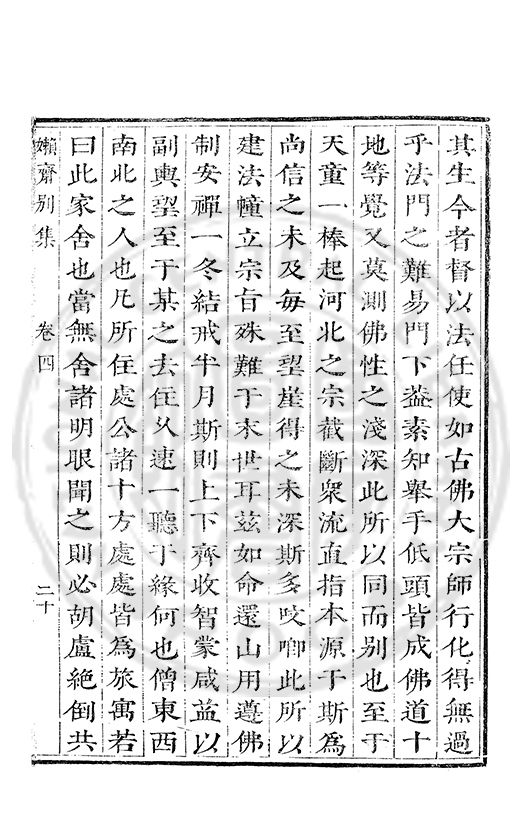 其生今者督以法任使如古佛大宗師行化得無過
乎法門之難易門下葢素知舉手低頭皆成佛道十
地等覺又莫測佛性之淺深此所以同而别也至于
天童一棒起河北之宗截斷衆流直指本源于斯爲
尚信之未及每至望崖得之未深斯多咬啣此所以
建法幢立宗旨殊難于末世耳兹如命還山用遵佛
制安禪一冬結戒半月斯則上下齊收智蒙咸益以
副輿望至于某之去住久速一聽于緣何也僧東西
南北之人也凡所住處公諸十方處處皆爲旅寓若
曰此家舍也當無舍諸明眼聞之則必胡盧絶倒共
嬾齋别集
卷四
二十